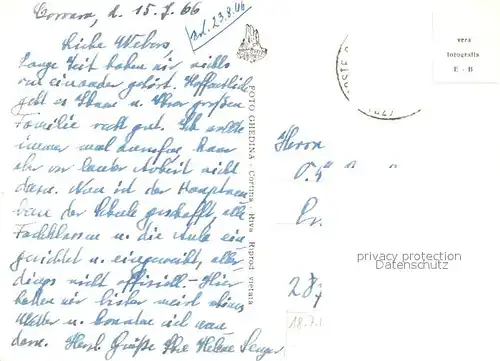 Corvara, d. 15.7.66
Bd. 23.8.66
Liebe Webers,
Lange Zeit haben wir nichts
voneinander gehört. Hoffentlich
geht es Ihnen u. Ihrer großen
Familie recht gut. Ich wollte
immer mal
vor lauter Arbeit nicht
dazu. Nun ist der Hauptneu-
bau der Schule geschafft, alle
Fachklassen u. die Aula ein-
gerichtet u. eingeweiht, aller-
dings nicht offiziell. - Hier
haben wir bisher meist schönes
Wetter u. konnten viel wan-
dern. Herzl. Grüße Ihre Helene
FOTO GHEDINA - Cortina - Riva Riprod. vietata
vera
fotografia
E - B
POSTE
Herrn
privacy protection
Datenschutz
28
18.7.